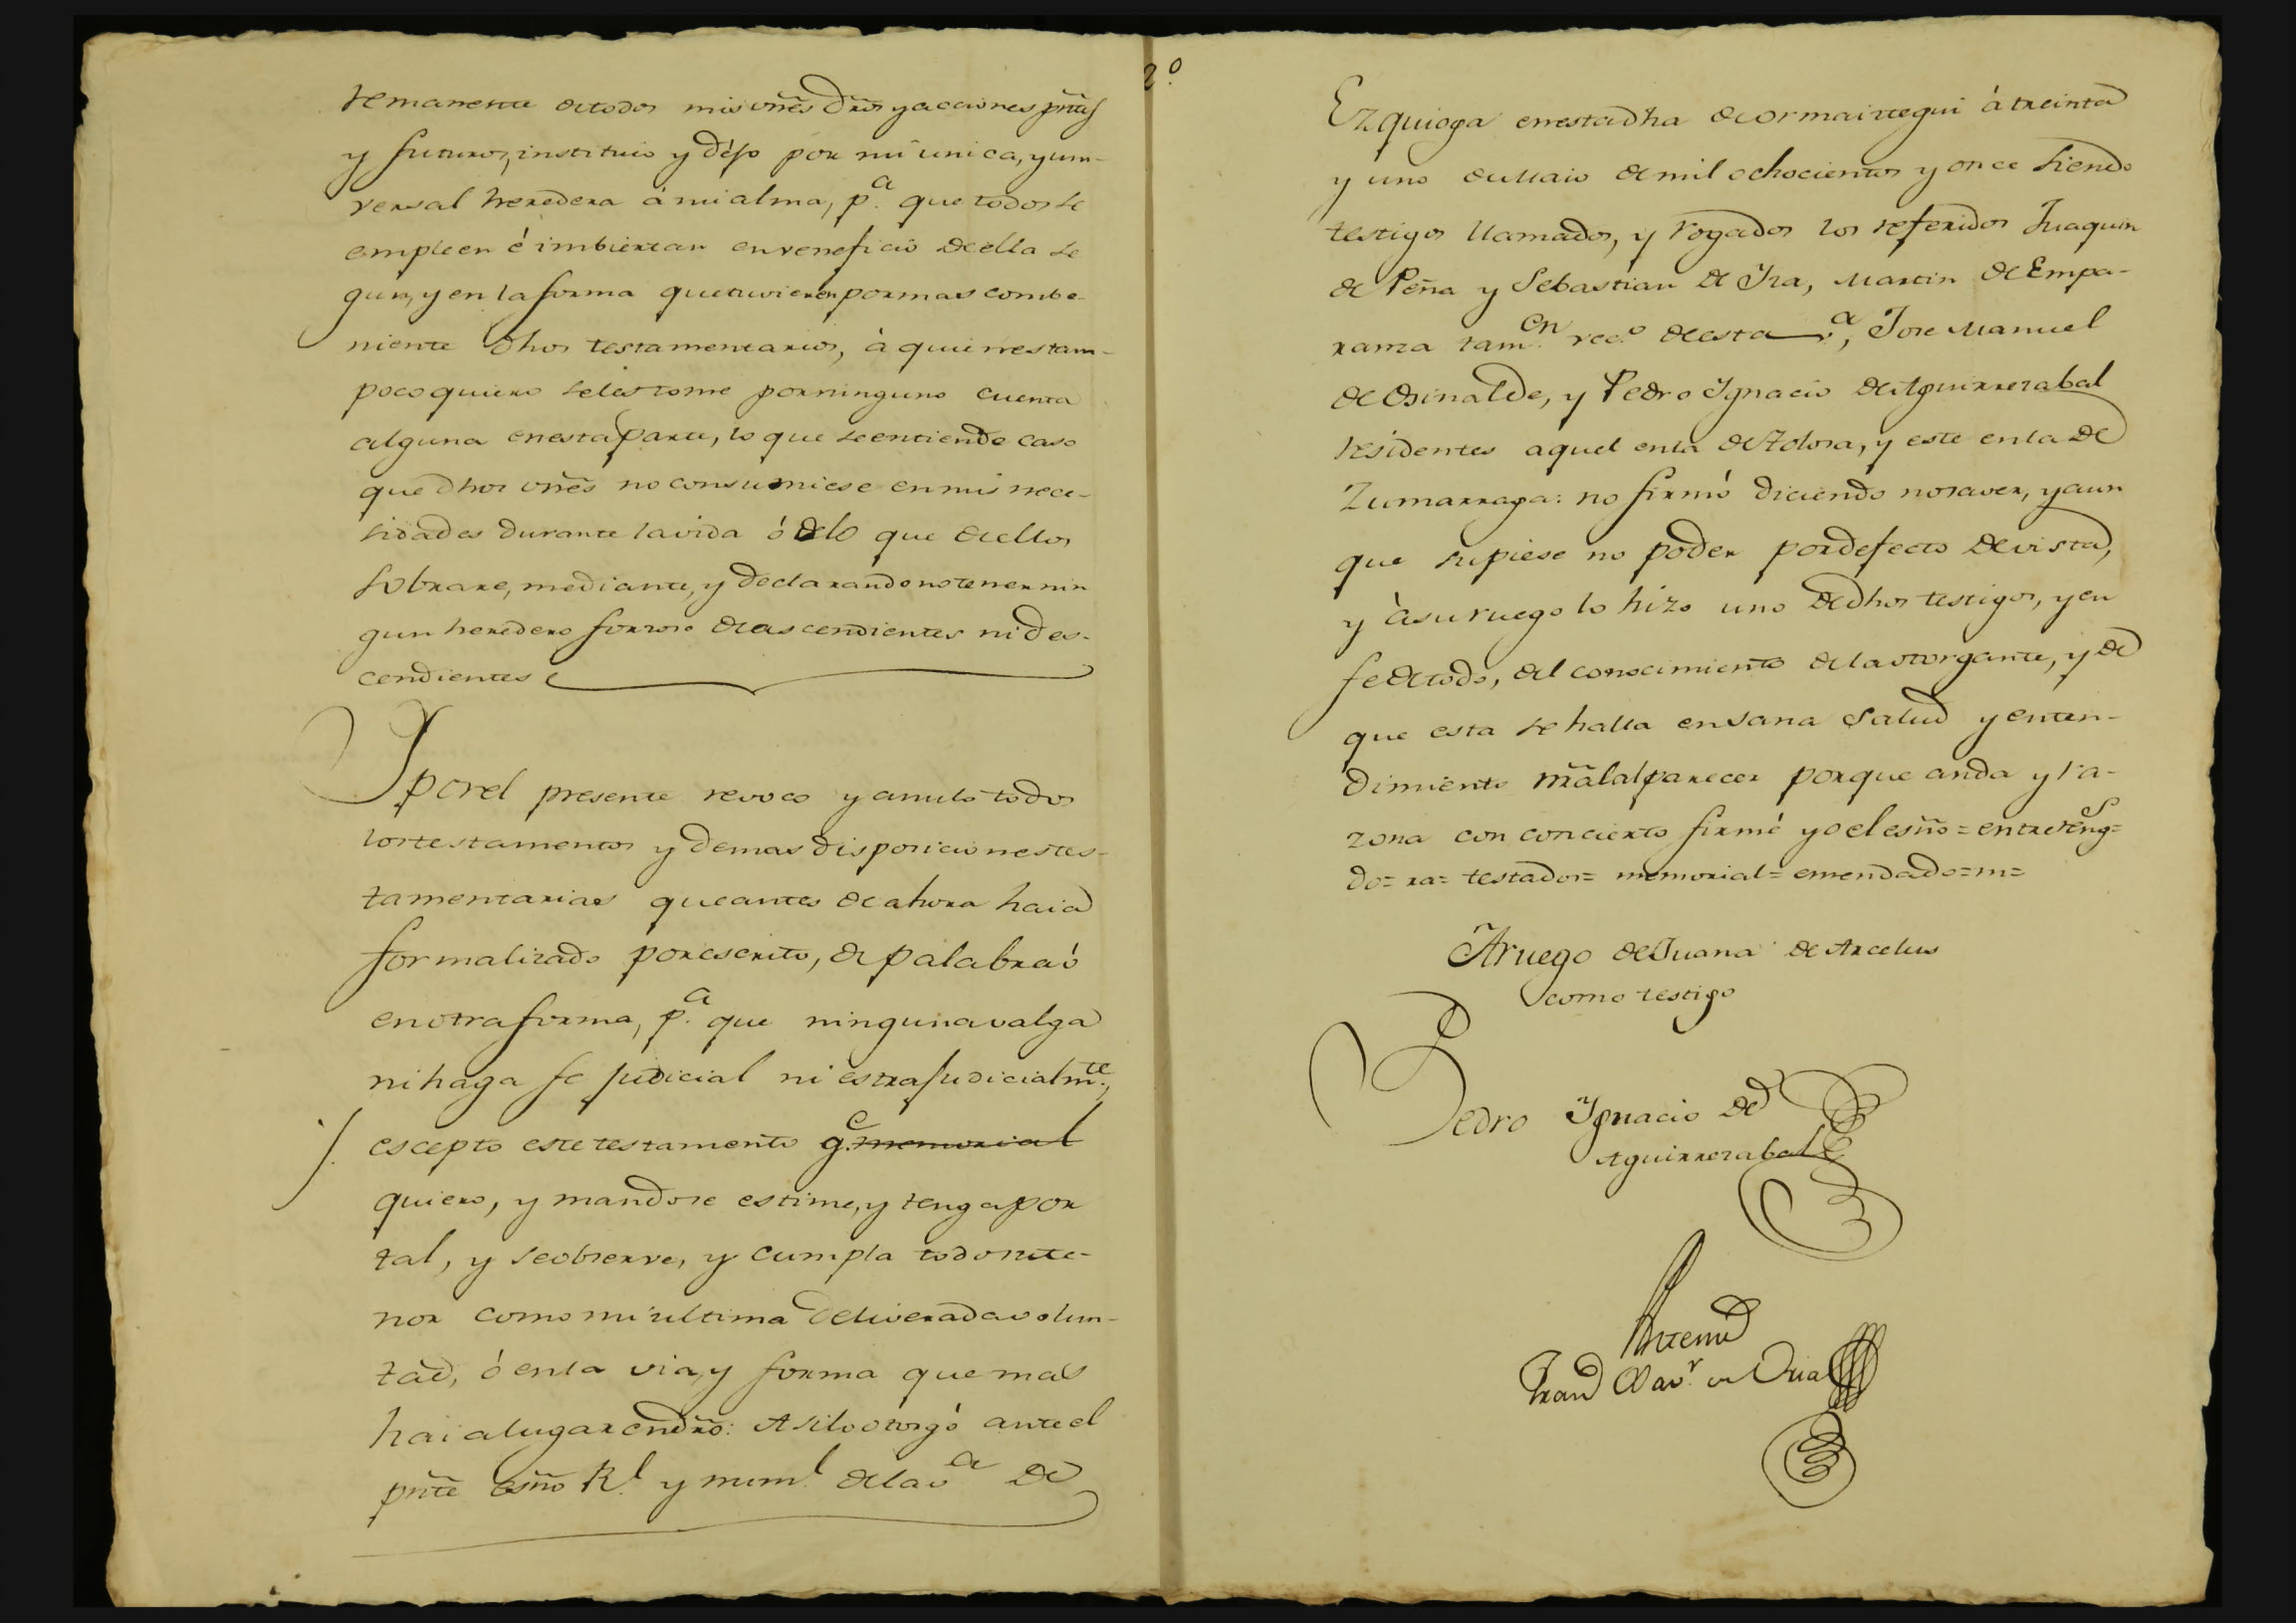 remanente de todos mis vñes dr̃os y acciones pñtes
y futuros, instituio y déjo por mi unica, y uni-
versal heredera á mi alma, p.ª que todos se
empleen é imbiertan en veneficio de ella se
gun, y en la forma que tuvieren por mas combe-
niente dhos testamentarios, à quienes tam-
poco quiero se les tome por ninguno cuenta
alguna en esta parte, lo que se entiende caso
que dhos vñes no consumiese en mis nece-
sidades durante la vida ó de lo que de ellos
sobrare, mediante, y declarando no tener nin
gun heredero forzoso de ascendientes ni des-
cendientes
Y por el presente revoco y anulo todos
los testamentos y demas disposiciones tes-
tamentarias que antes de ahora haia
formalizado por escrito, de palabra ó
en otra forma, p.ª que ninguna valga
ni haga fe judicial ni estrajudicialm.te,
escepto este testamento q.e memorial
quiero, y mando se estime, y tenga por
tal, y se observe, y cumpla todo su te-
nor como mi ultima deliverada volun-
tad, ó en la via, y forma que mas
haia lugar en dr̃o: Asi lo otorgó ante el
pñte esño R.l y num.l de la v.ª de
2.º
Ezquioga en esta dha de ormaiztegui à treinta
y uno de Maio de mil ochocientos y once siendo
testigos llamados, y rogados los referidos Juaquin
de Peña y Sebastian de Yza, Martin de Empa-
ranza tam.en vec.o de esta v.ª, Jose Manuel
de Osinalde, y Pedro Ygnacio de Aguirrezabal
residentes aquel en la de Tolosa, y este en la de
Zumarraga: no firmó diciendo no saver, y aun
que supiese no poder por defecto de vista,
y à su ruego lo hizo uno de dhos testigos, y en
fe de todo, del conocimiento de la otorgante, y de
que esta se halla en sana salud y enten-
dimiento ñral al parecer porque anda y ra-
zona con concierto firmé yo el esño = entrereng.s
do = ra = testador = memorial = emendado = m =
A ruego de Juana de Arcelus
como testigo
Pedro Ygnacio de
Aguirrezabal
Antemi
Fran.co Xav.r de Oria